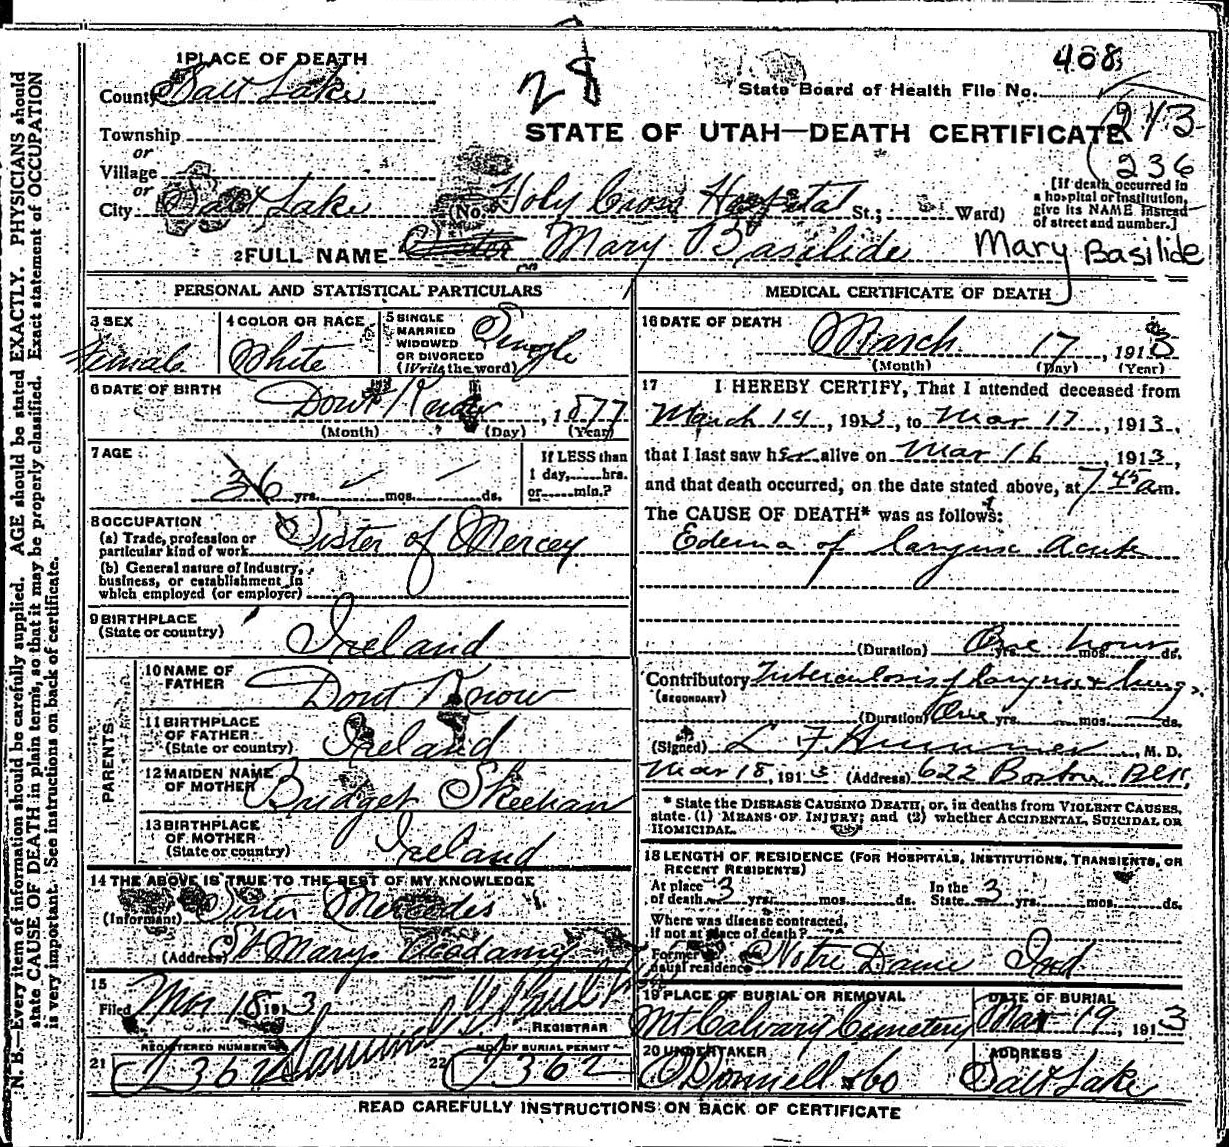 408
28
1 PLACE OF DEATH
County Salt Lake
State Board of Health File No.
Township
or
STATE OF UTAH—DEATH CERTIFICATE
213
236
Village
or
City Salt Lake (No. Holy Cross Hospital St.; Ward)
[If death occurred in
a hospital or institution,
give its NAME instead
of street and number.]
2 FULL NAME Sister Mary Basilide
Mary Basilide
PERSONAL AND STATISTICAL PARTICULARS
3 SEX
Female
4 COLOR OR RACE
White
5 SINGLE
MARRIED
WIDOWED
OR DIVORCED
(Write the word)
Single
6 DATE OF BIRTH
Dont Know, 1877
(Month) (Day) (Year)
7 AGE
36 yrs. mos. ds.
If LESS than
1 day, hrs.
or min.?
8 OCCUPATION
(a) Trade, profession or
particular kind of work Sister of Mercey
(b) General nature of Industry,
business, or establishment in
which employed (or employer)
9 BIRTHPLACE
(State or country) Ireland
PARENTS
10 NAME OF
FATHER Dont Know
11 BIRTHPLACE
OF FATHER
(State or country) Ireland
12 MAIDEN NAME
OF MOTHER Bridget Skeehan
13 BIRTHPLACE
OF MOTHER
(State or country) Ireland
14 THE ABOVE IS TRUE TO THE BEST OF MY KNOWLEDGE
(Informant) Sister Mercedes
(Address) St Marys Acadamy
15
Filed Mar 18 1913
REGISTRAR
21 REGISTERED NUMBER
J 362
22 NO. OF BURIAL PERMIT
J 362
MEDICAL CERTIFICATE OF DEATH
16 DATE OF DEATH
March 17, 1913
(Month) (Day) (Year)
17 I HEREBY CERTIFY, That I attended deceased from
March 14, 1913, to Mar 17, 1913,
that I last saw her alive on Mar 16, 1913,
and that death occurred, on the date stated above, at 7 45 am.
The CAUSE OF DEATH* was as follows:
Edema of larynx Acute
(Duration) One hour yrs. mos. ds.
Contributory Tuberculosis of larynx & lungs
(SECONDARY)
(Duration) One yrs. mos. ds.
(Signed) L F Hummer, M. D.
Mar 18, 1913 (Address) 622 Boston Bldg
* State the DISEASE CAUSING DEATH, or, in deaths from VIOLENT CAUSES,
state (1) MEANS OF INJURY; and (2) whether ACCIDENTAL, SUICIDAL OR
HOMICIDAL.
18 LENGTH OF RESIDENCE (FOR HOSPITALS, INSTITUTIONS, TRANSIENTS, OR
RECENT RESIDENTS)
At place
of death 3 yrs. mos. ds.
In the
State 3 yrs. mos. ds.
Where was disease contracted,
if not at place of death?
Former or
usual residence Notre Dame Ind
19 PLACE OF BURIAL OR REMOVAL
Mt Calvary Cemetery
DATE OF BURIAL
Mar 19, 1913
20 UNDERTAKER
O'Donnell & Co
ADDRESS
Salt Lake
READ CAREFULLY INSTRUCTIONS ON BACK OF CERTIFICATE
N. B.—Every item of information should be carefully supplied. AGE should be stated EXACTLY. PHYSICIANS should
state CAUSE OF DEATH in plain terms, so that it may be properly classified. Exact statement of OCCUPATION
is very important. See instructions on back of certificate.